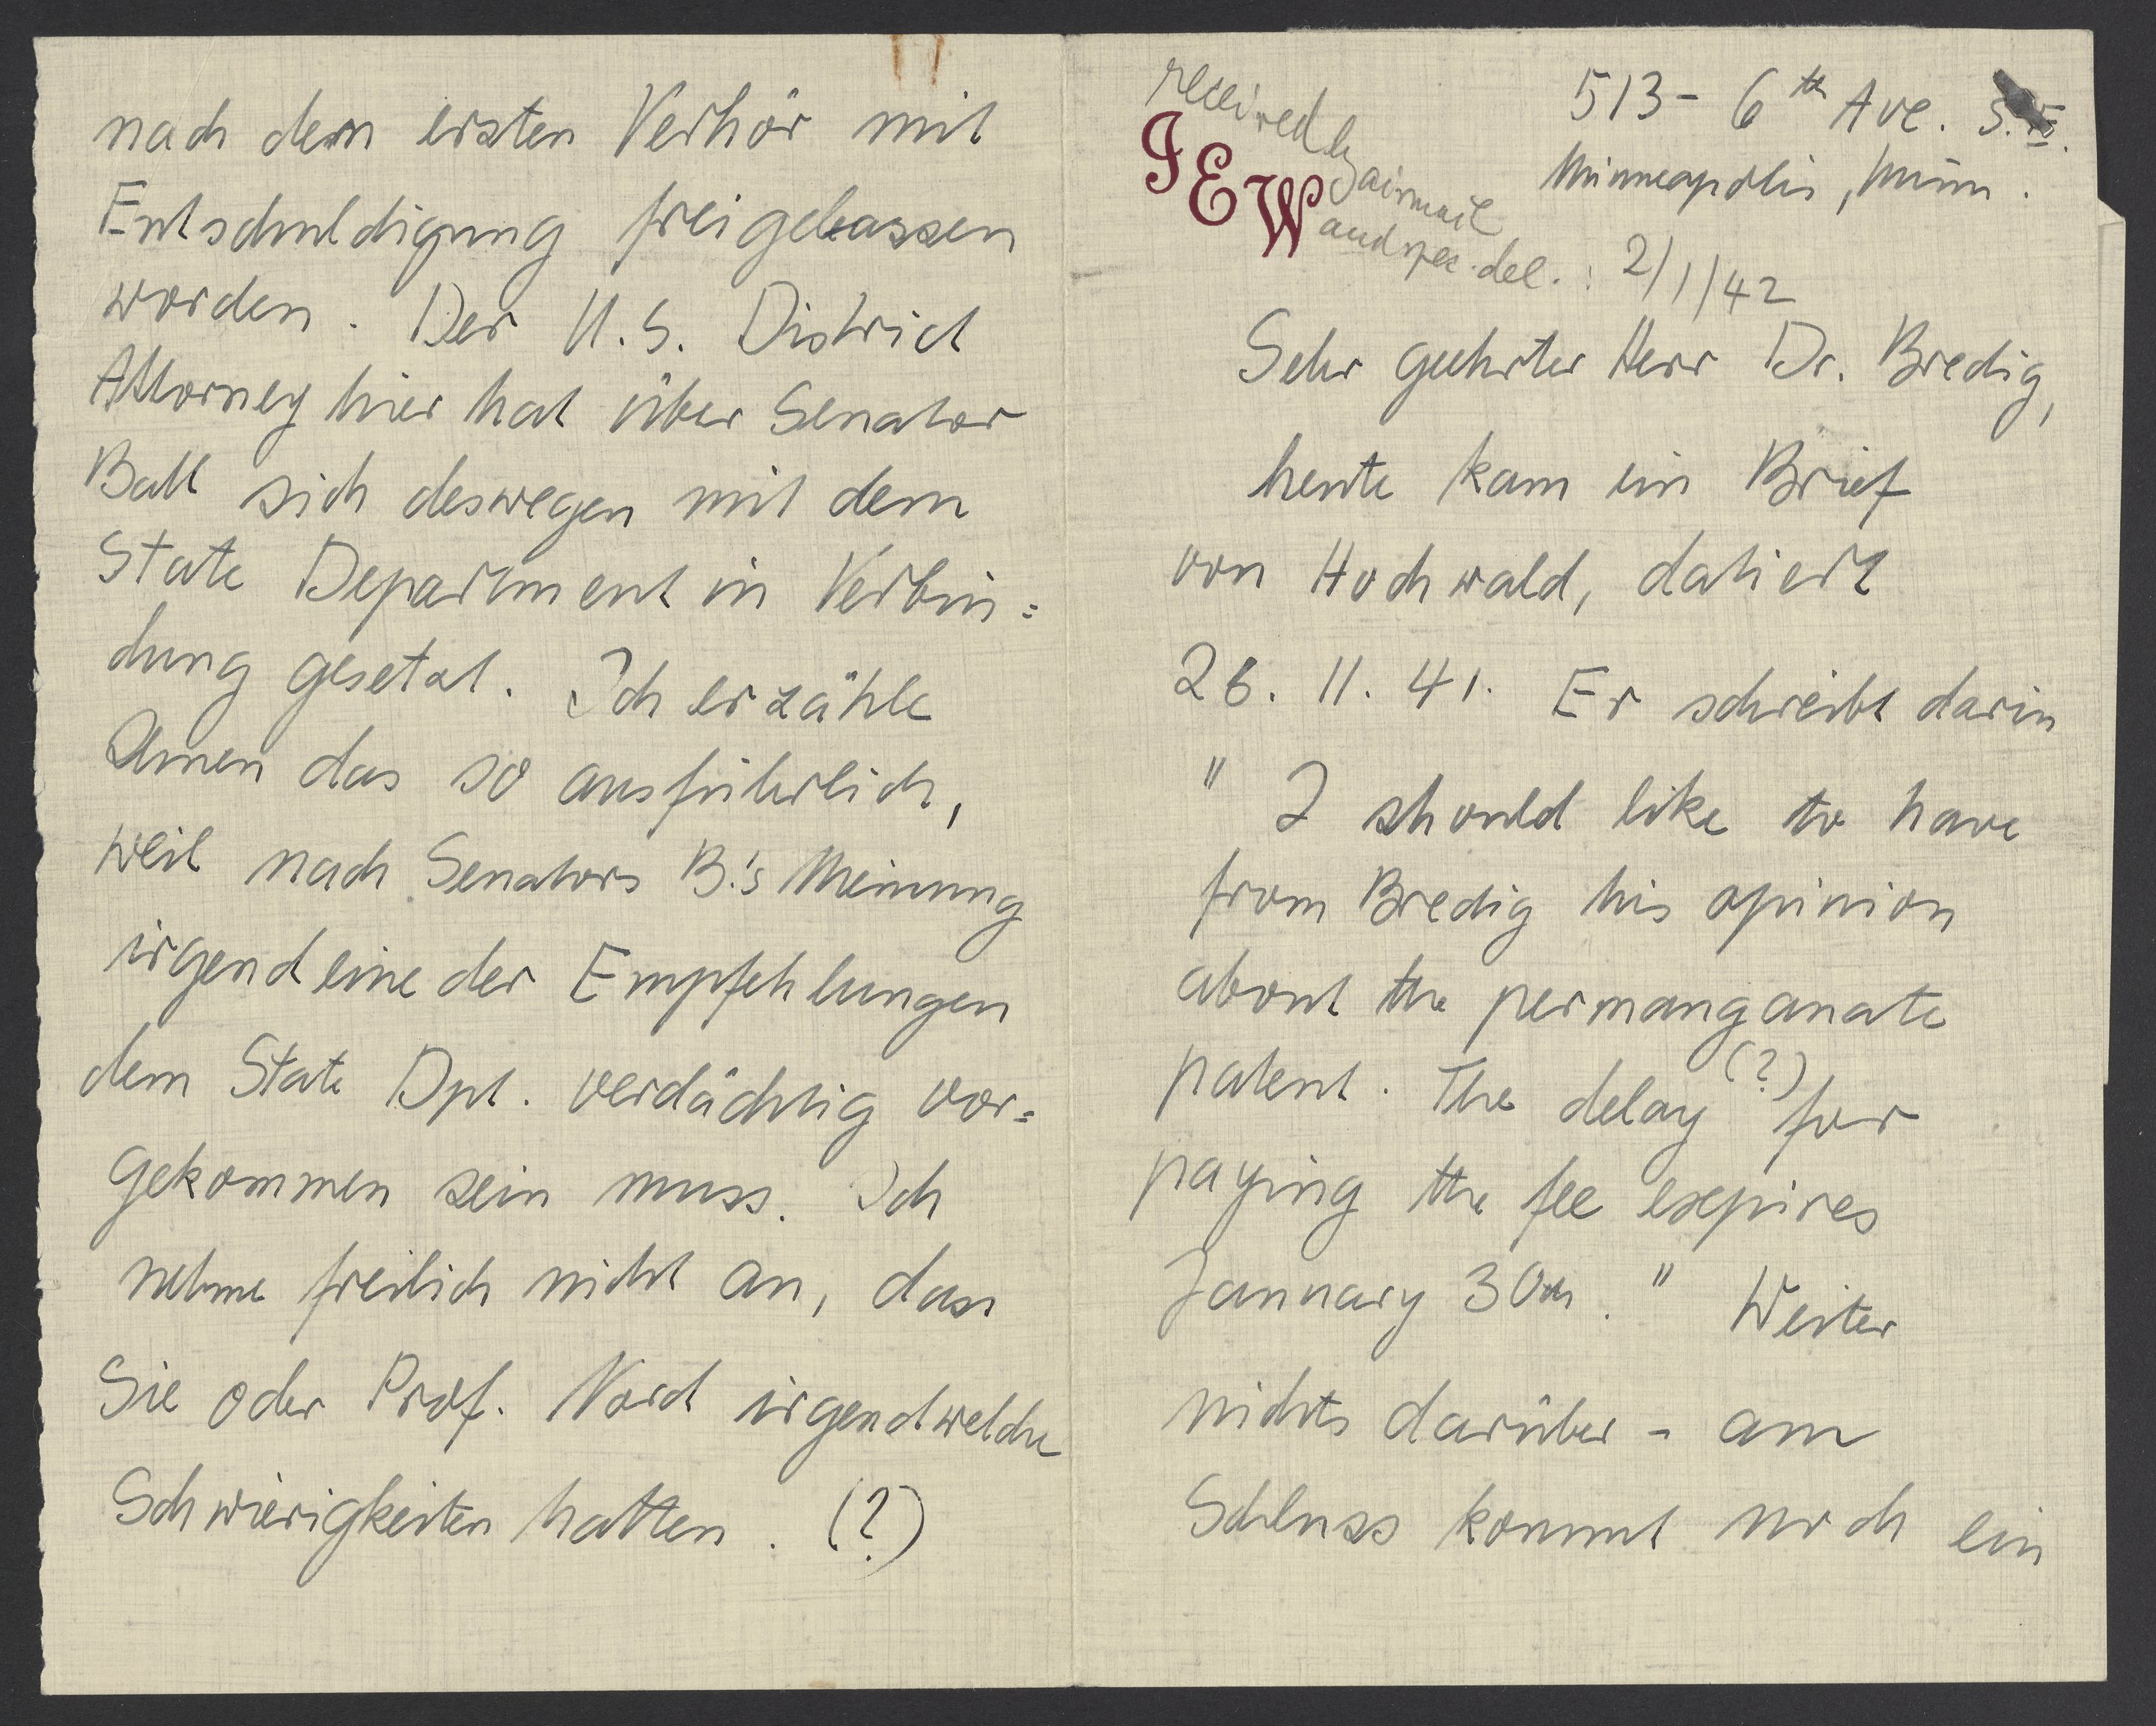 nach dem ersten Verhör mit
Entschuldigung freigelassen
worden. Der U.S. District
Attorney hier hat über Senator
Ball sich deswegen mit dem
State Department in Verbin=
dung gesetzt. Ich erzähle
Ihnen das so ausführlich,
weil nach Senators B.'s Meinung
irgendeine der Empfehlungen
dem State Dpt. verdächtig vor=
gekommen sein muss. Ich
nehme freilich nicht an, dass
Sie oder Prof. Nord irgendwelche
Schwierigkeiten hatten. (?)
513 - 6th Ave. S.E.
Minneapolis, Minn.
received by airmail
JEW
and spec. del. : 2/1/42
Sehr geehrter Herr Dr. Bredig,
heute kam ein Brief
von Hochwald, datiert
26. 11. 41. Er schreibt darin
" I should like to have
from Bredig his opinion
about the permanganate
patent. The delay (?) for
paying the fee expires
January 30th." Weiter
nichts darüber - am
Schluss kommt noch ein